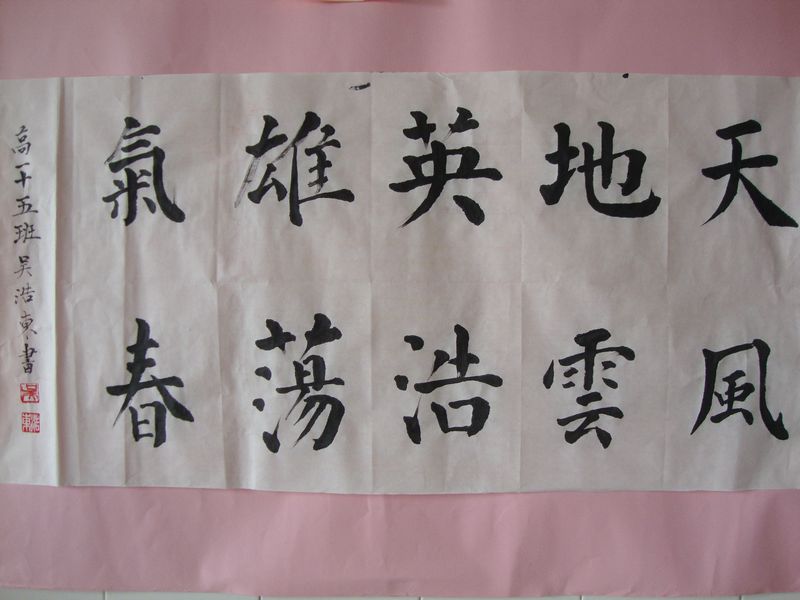 天地英雄氣
風雲浩蕩春
高一十五班吴浩東書